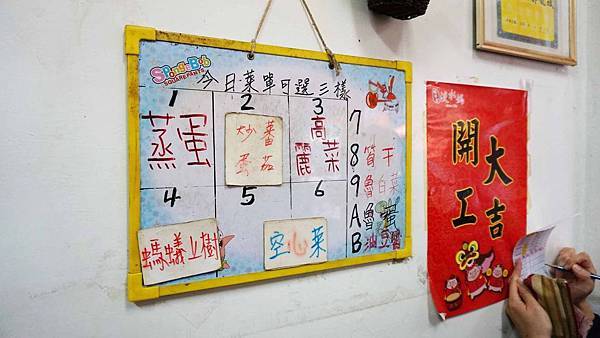 SpongeBob
SQUAREPANTS
今日菜單可選三樣
1
蒸蛋
2
炒蕃
蛋茄
3
高
麗菜
4
螞蟻上樹
5
6
空心菜
7
8 筍干
9 魯白菜
A 魯蛋
B 油豆腐
開工
大吉